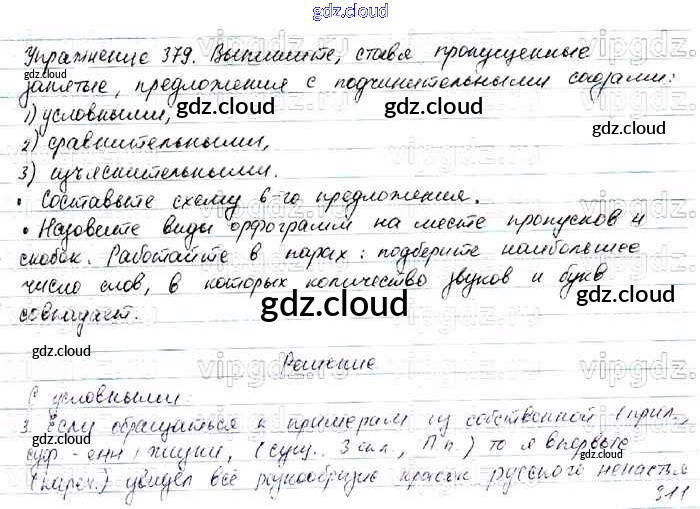 gdz.cloud
Упражнение 379. Выпишите, ставя пропущенные
запятые, предложения с подчинительными союзами:
1) условными,
2) сравнительными,
3) изъяснительными.
• Составьте схему 6-го предложения.
• Назовите виды орфограмм на месте пропусков и
скобок. Работайте в парах: подберите наибольшее
число слов, в которых количество звуков и букв
совпадает.
Решение
С условными:
3. Если обращаться к примерам из собственной (прил.,
суф -енн) жизни, (сущ., 3 скл., П.п.) то я впервые
(нареч.) увидел всё разнообразие красок русского ненастья
311
gdz.cloud
gdz.cloud
gdz.cloud
gdz.cloud
gdz.cloud
gdz.cloud
gdz.cloud
gdz.cloud
gdz.cloud
gdz.cloud
gdz.cloud